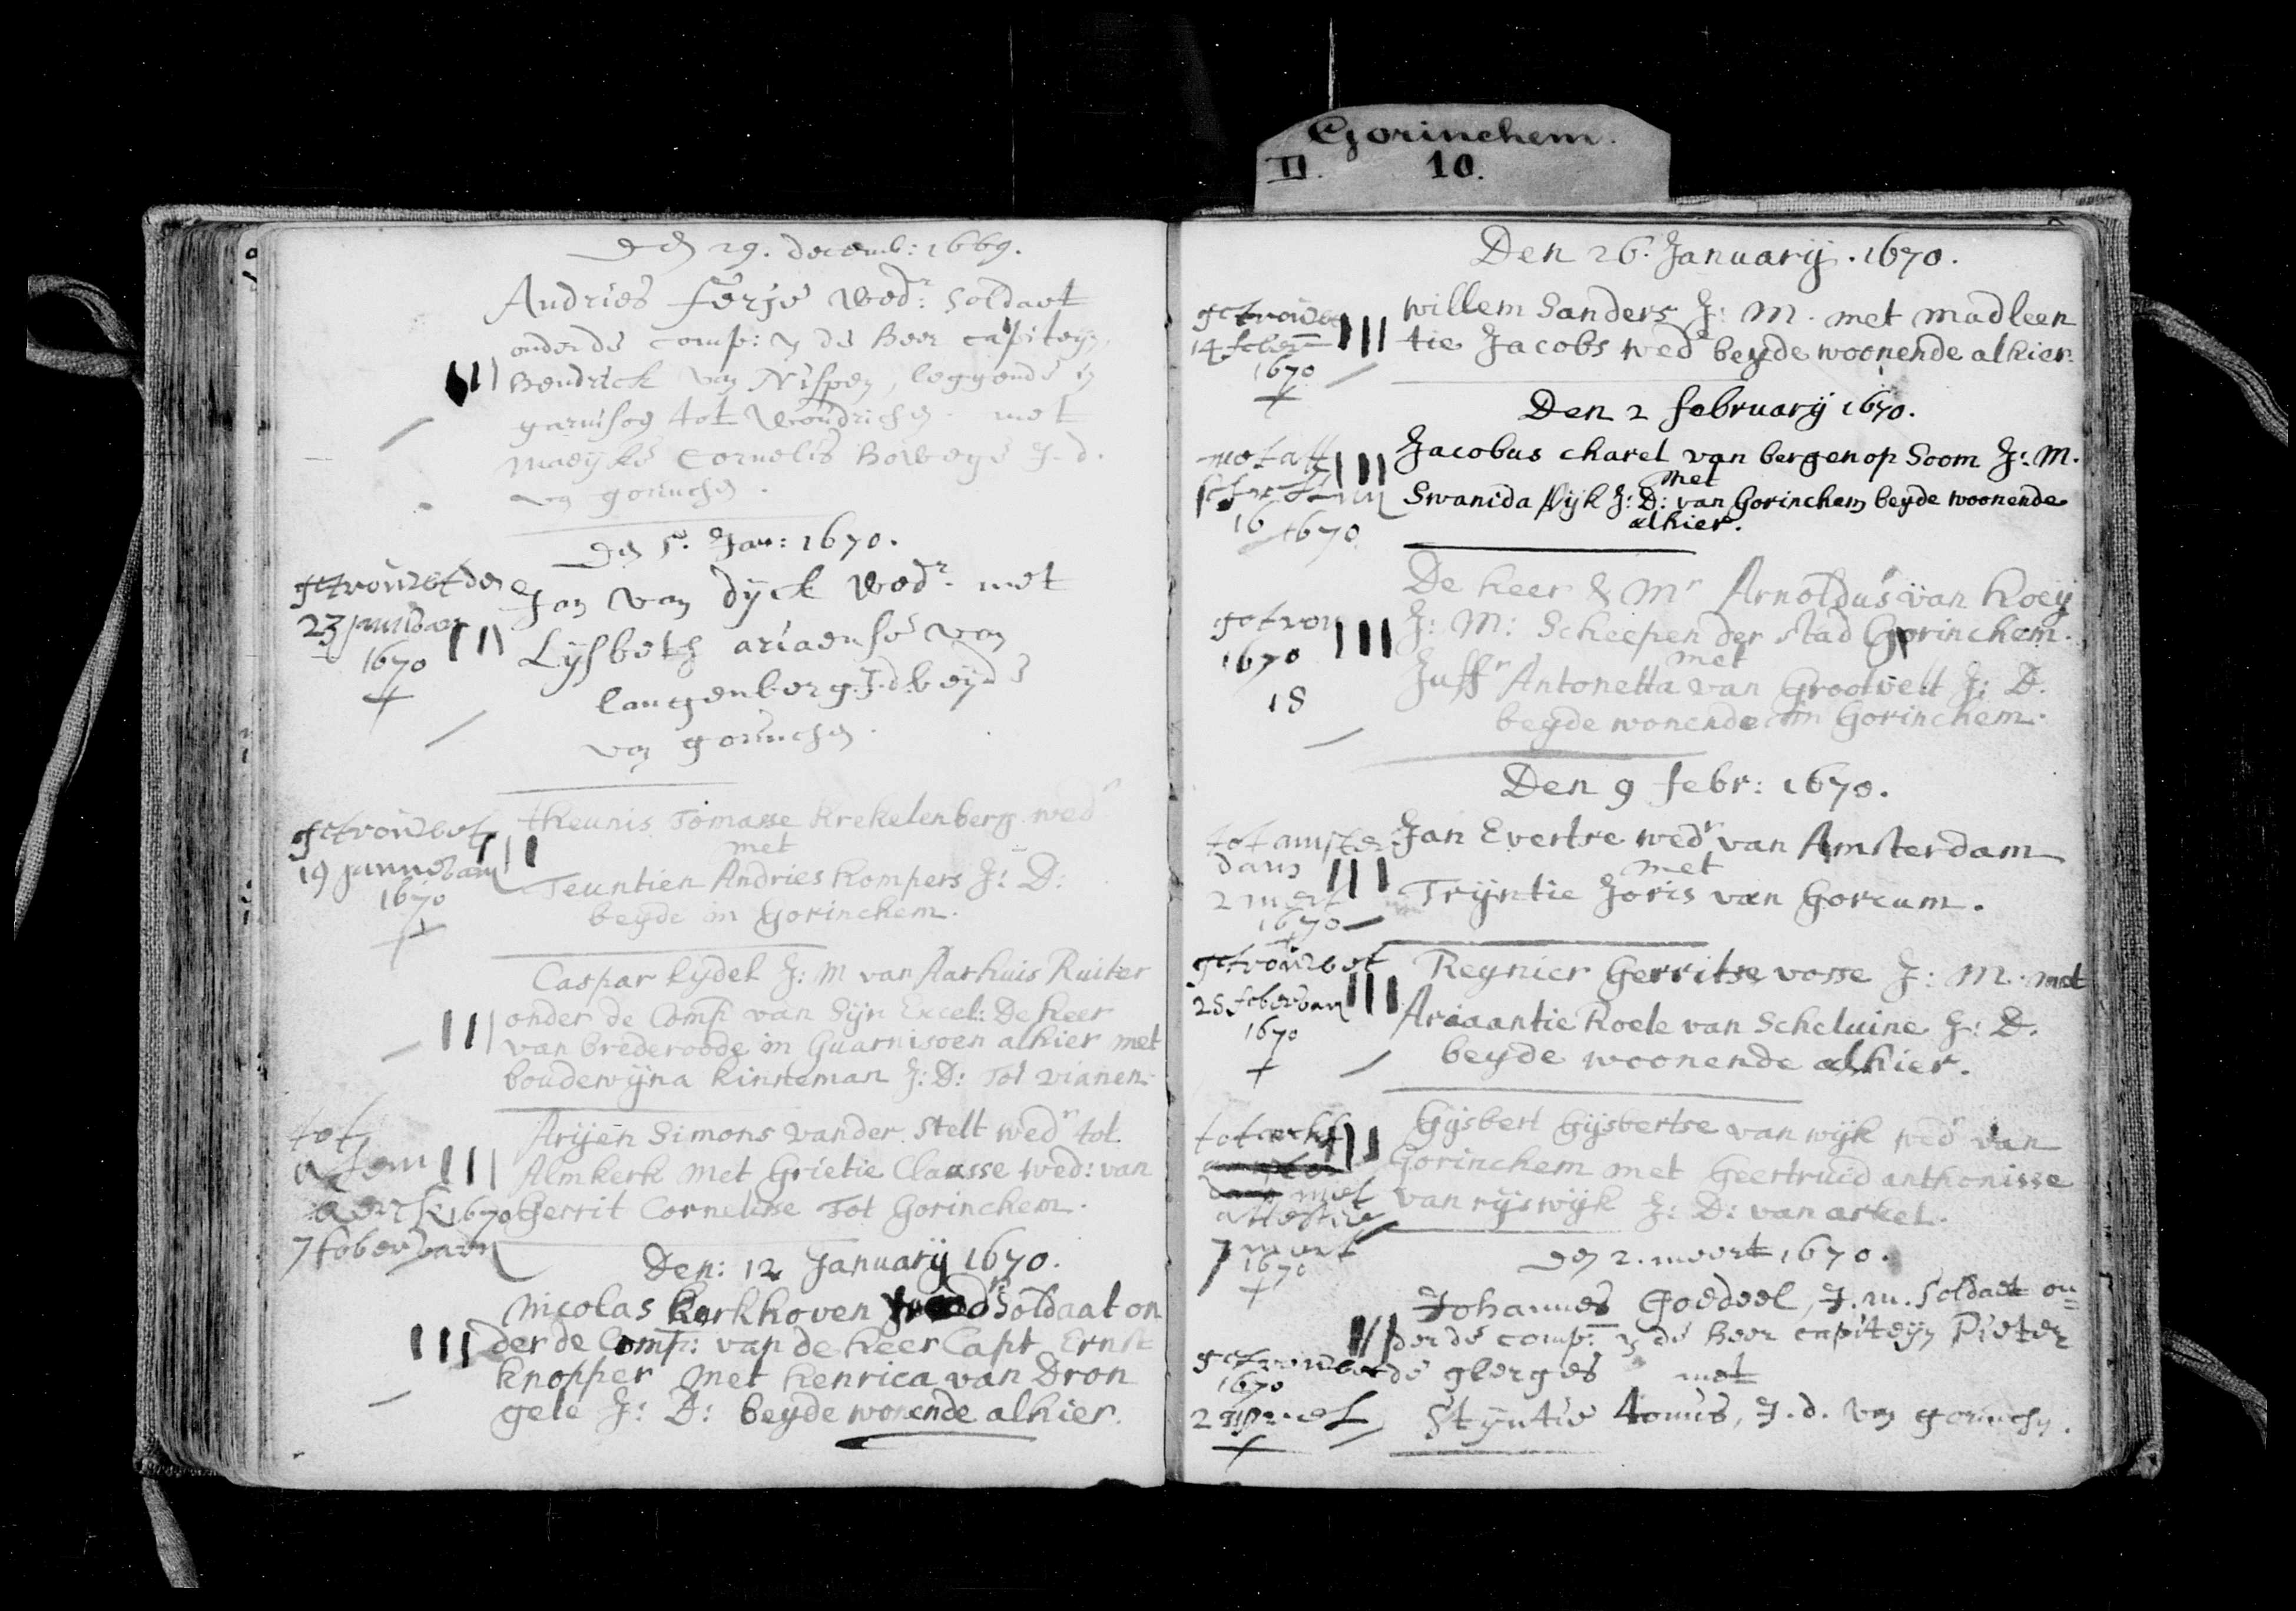 Gorinchem.
II. 10.
Den 29. decemb: 1669.
Andries ferjé wedr: soldaet
onder de comp: van de Heer capiteyn
Hendrick van Nispen, leggende in
garnisoen tot Woudrichem met
Maeijke Cornelis J. d.
van gorinchem.
Den 5. Jan: 1670.
getrouwt den
23 januwar
1670
Jan van dyck wedr. met
Lysbeth ariaense van
langenberg. J. d. beyde
van gorinchem.
getrouwet
19 januwari
1670
theunis Tomasse Krekelenberg wedr
met
Teuntien Andries kompers J: D:
beyde in Gorinchem.
Caspar Lydel J: M van Aarhuis Ruiter
onder de Comp van Syn Excel: De heer
van brederoode in Guarnisoen alhier met
boudewyna kinneman J: D: Tot vianen.
tot
1670
7 feberwari
Arijen Simons vander Stelt wedr tot
Almkerk met Grietie Claasse wed: van
Gerrit Cornelisse Tot Gorinchem.
Den: 12 January 1670.
Nicolas Kerkhoven Soldaat on
der de Comp: van de heer Capt Ernst
knopper met henrica van Dron
gele J: D: beyde wonende alhier.
Den 26. January. 1670.
getrouwt
14 feber
1670
willem Sanders J: M. met madleen
tie Jacobs wedr beyde woonende alhier.
Den 2 february 1670.
met att
16 1670
Jacobus charel van bergen op Soom J: M.
met
Swanida Pijk J: D: van Gorinchem beyde woonende
alhier.
getrou
1670
18
De heer & Mr Arnoldus van hoey
J: M: Scheepen der stad Gorinchem.
met
Juffr Antonetta van Grootvelt J: D.
beyde wonende in Gorinchem.
Den 9 febr: 1670.
tot amster
dam
2 mert
1670
Jan Evertse wedr van Amsterdam
met
Tryntie Joris van Gorcum.
getrouwet
25 feberwari
1670
Reynier Gerritse vosse J: M. met
Ariaantie Roele van Scheluine J: D.
beyde woonende alhier.
tot
met
attestatie
7 mert
1670
Gysbert Gysbertse van wyk wedr van
Gorinchem met Geertruid anthonisse
van ryswyk J: D: van arkel.
Den 2. meert 1670.
getrouwet
1670
Johannes Goedeel, J. m. soldaet on=
der de comp: van de Heer capiteyn Pieter
de gberges met
Styntie tonis, J. d. van gorinchem.